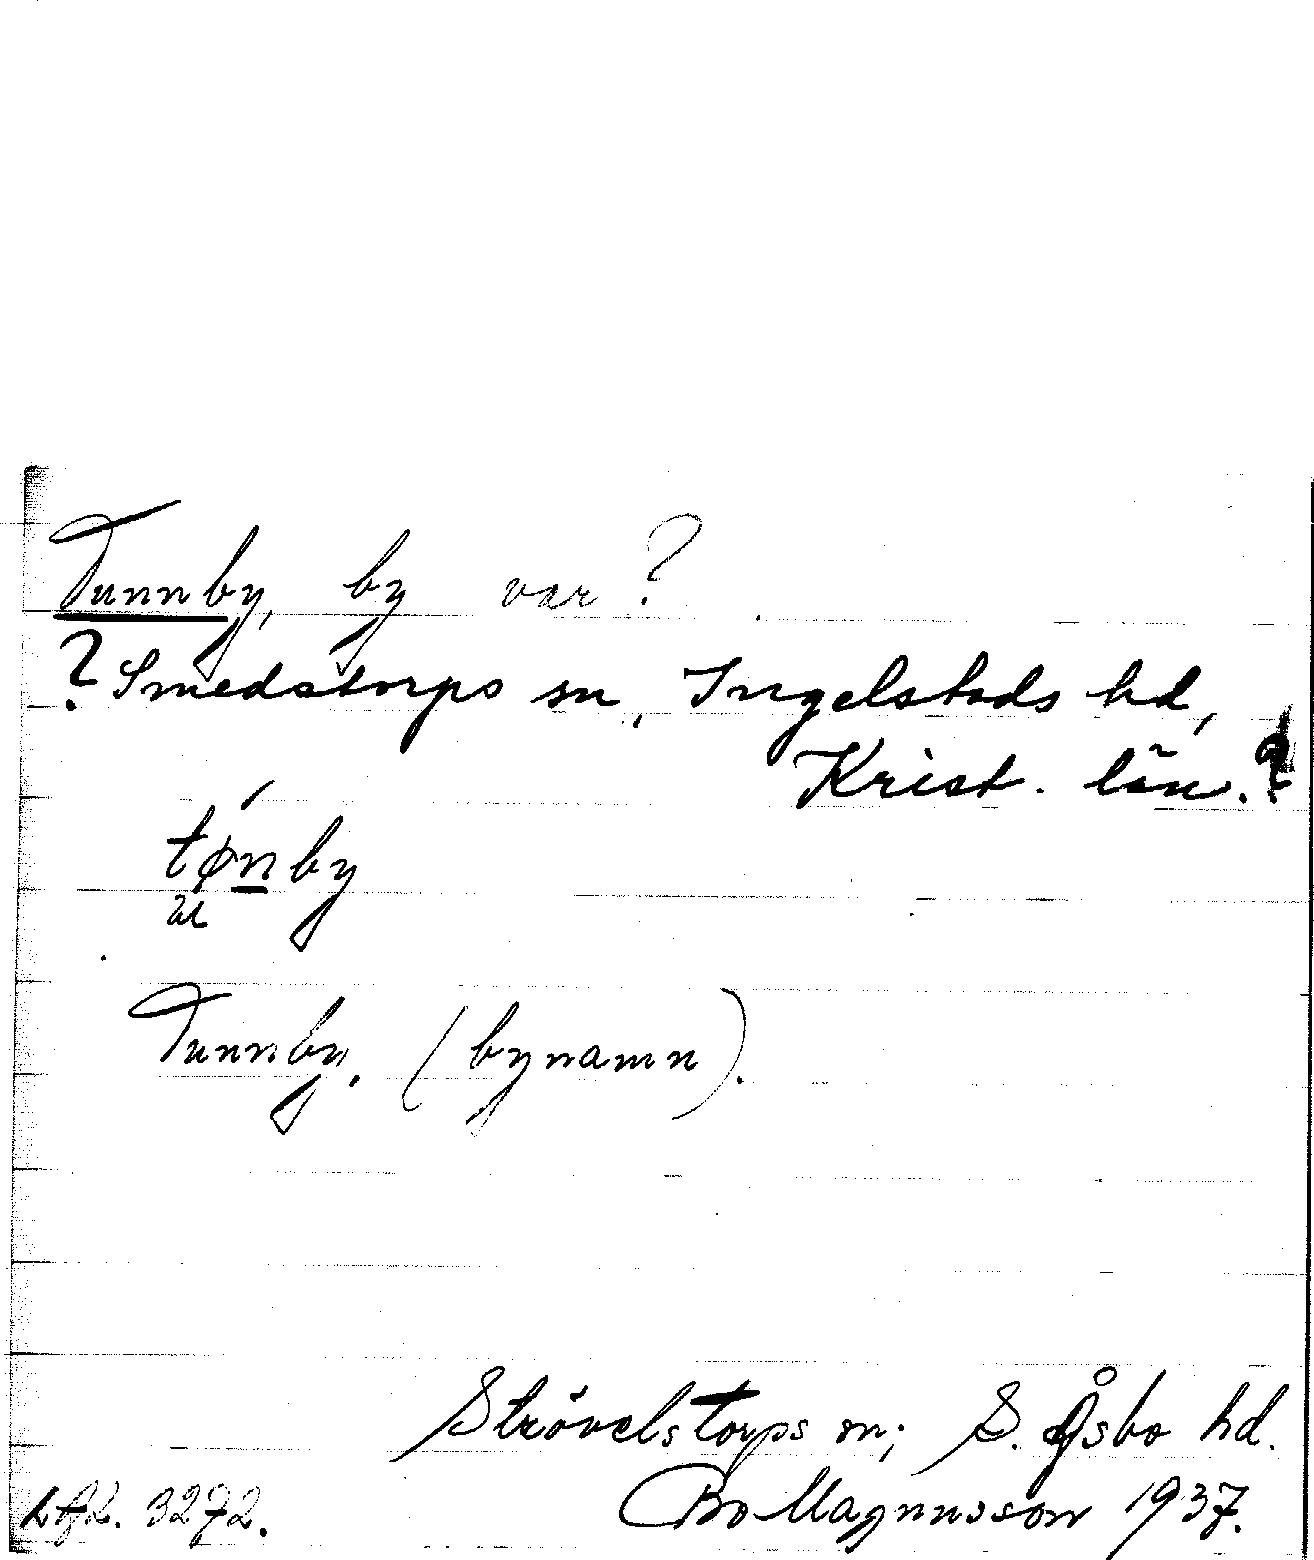 Tunnby, by var?
? Smedstorps sn, Ingelstads hd,
Krist. län.?
tønby
u
Tunnby. (bynamn).
Strövelstorps sn; S. Åsbo hd.
3272. Bo Magnusson 1937.